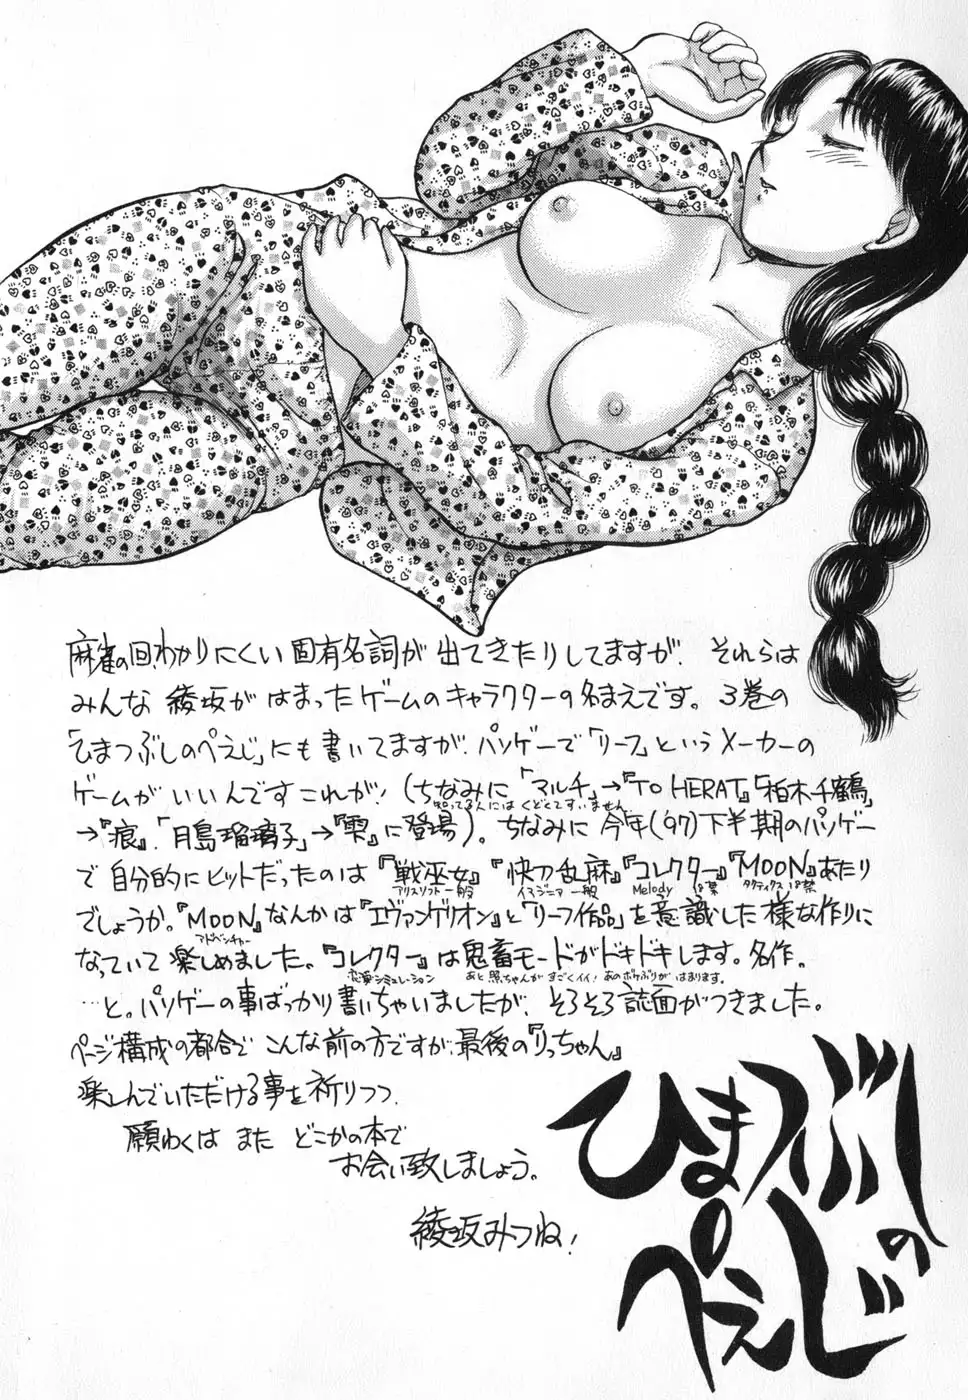 麻雀の回、わかりにくい固有名詞が出てきたりしてますが、それらは
みんな綾坂がはまったゲームのキャラクターの名まえです。3巻の
「ひまつぶしのぺえじ」にも書いてますが、パソゲーで「リーフ」というメーカーの
ゲームがいいんですこれが!(ちなみに「マルチ」→『TO HERAT』「柏木千鶴」
知ってる人にはくどくてすいません
→『痕』、「月島瑠璃子」→『雫』に登場)。ちなみに今年('97)下半期のパソゲー
で自分的にヒットだったのは『戦巫女』『快刀乱麻』『コレクター』『MOON』あたり
アリスソフト 一般 イマジニア 一般 Melody 18禁 タクティクス 18禁
でしょうか。『MOON』なんかは『エヴァンゲリオン』と「リーフ作品」を意識した様な作りに
アドベンチャー
なっていて楽しめました。『コレクター』は鬼畜モードがドキドキします。名作。
恋愛シミュレーション あと照ちゃんがすごくイイ!あのボケぶりがはまります。
…と。パソゲーの事ばっかり書いちゃいましたが、そろそろ誌面がつきました。
ページ構成の都合でこんな前の方ですが、最後の『りっちゃん』
楽しんでいただける事を祈りつつ、
願わくは また どこかの本で
お会い致しましょう。
綾坂みつね!
ひまつぶしの
ぺえじ